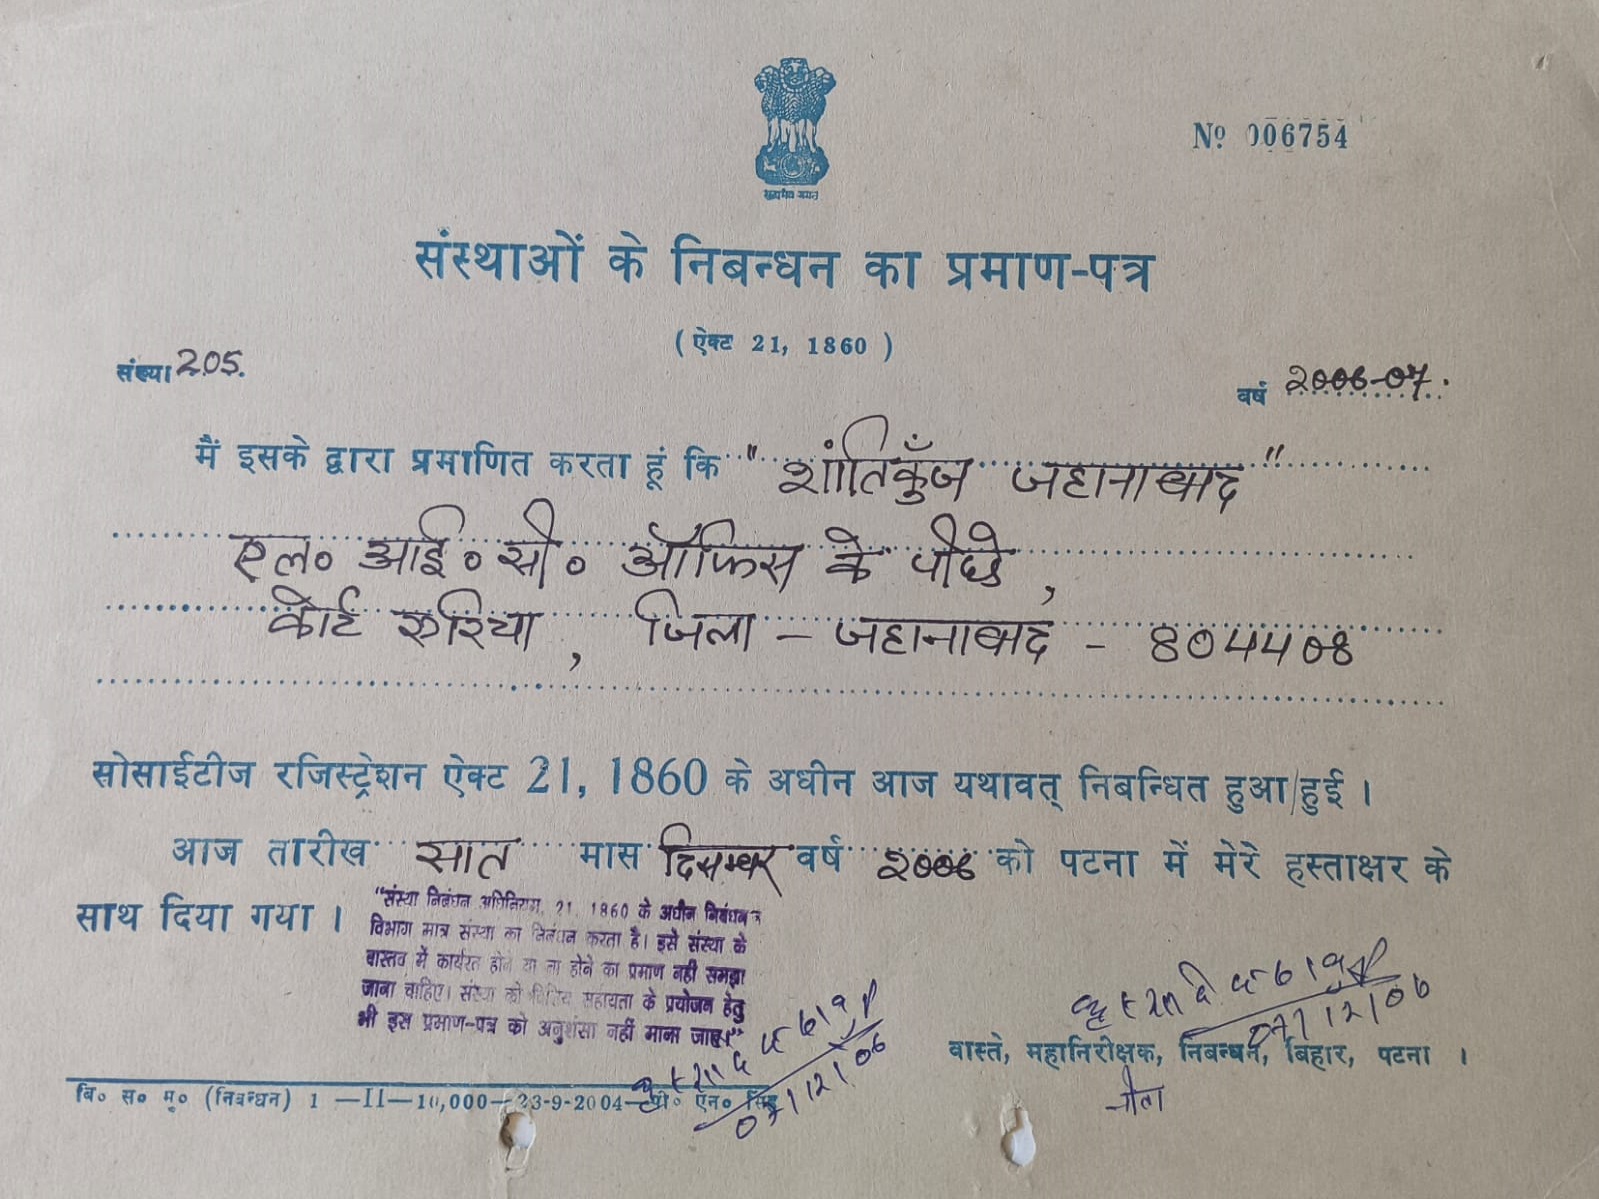 सत्यमेव जयते
Nº 006754
संस्थाओं के निबन्धन का प्रमाण-पत्र
( ऐक्ट 21, 1860 )
संख्या 205.
वर्ष 2006-07.
मैं इसके द्वारा प्रमाणित करता हूं कि "शांतिकुँज जहानाबाद"
एल० आई० सी० ऑफिस के पीछे,
कोर्ट एरिया, जिला - जहानाबाद - 804408
सोसाईटीज रजिस्ट्रेशन ऐक्ट 21, 1860 के अधीन आज यथावत् निबन्धित हुआ/हुई ।
आज तारीख सात मास दिसम्बर वर्ष 2006 को पटना में मेरे हस्ताक्षर के
साथ दिया गया ।
"संस्था निबंधन अधिनियम, 21, 1860 के अधीन निबंधन
विभाग मात्र संस्था का निबंधन करता है। इसे संस्था के
वास्तव में कार्यरत होने या ना होने का प्रमाण नहीं समझा
जाना चाहिए। संस्था को वित्तिय सहायता के प्रयोजन हेतु
भी इस प्रमाण-पत्र को अनुशंसा नहीं माना जाए।"
07/12/06
07/12/06
वास्ते, महानिरीक्षक, निबन्धन, बिहार, पटना ।
बि० स० मु० (निबन्धन) 1 —II—10,000—23-9-2004—पी० एन० सिंह